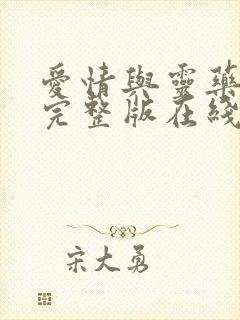 愛情與靈藥
完整版在綫
宋大勇